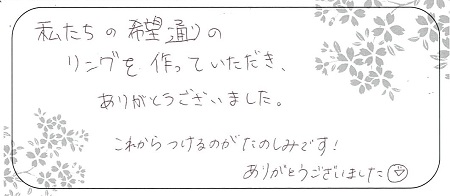 私たちの希望通りの
リングを作っていただき、
ありがとうございました。
これからつけるのがたのしみです!
ありがとうございました